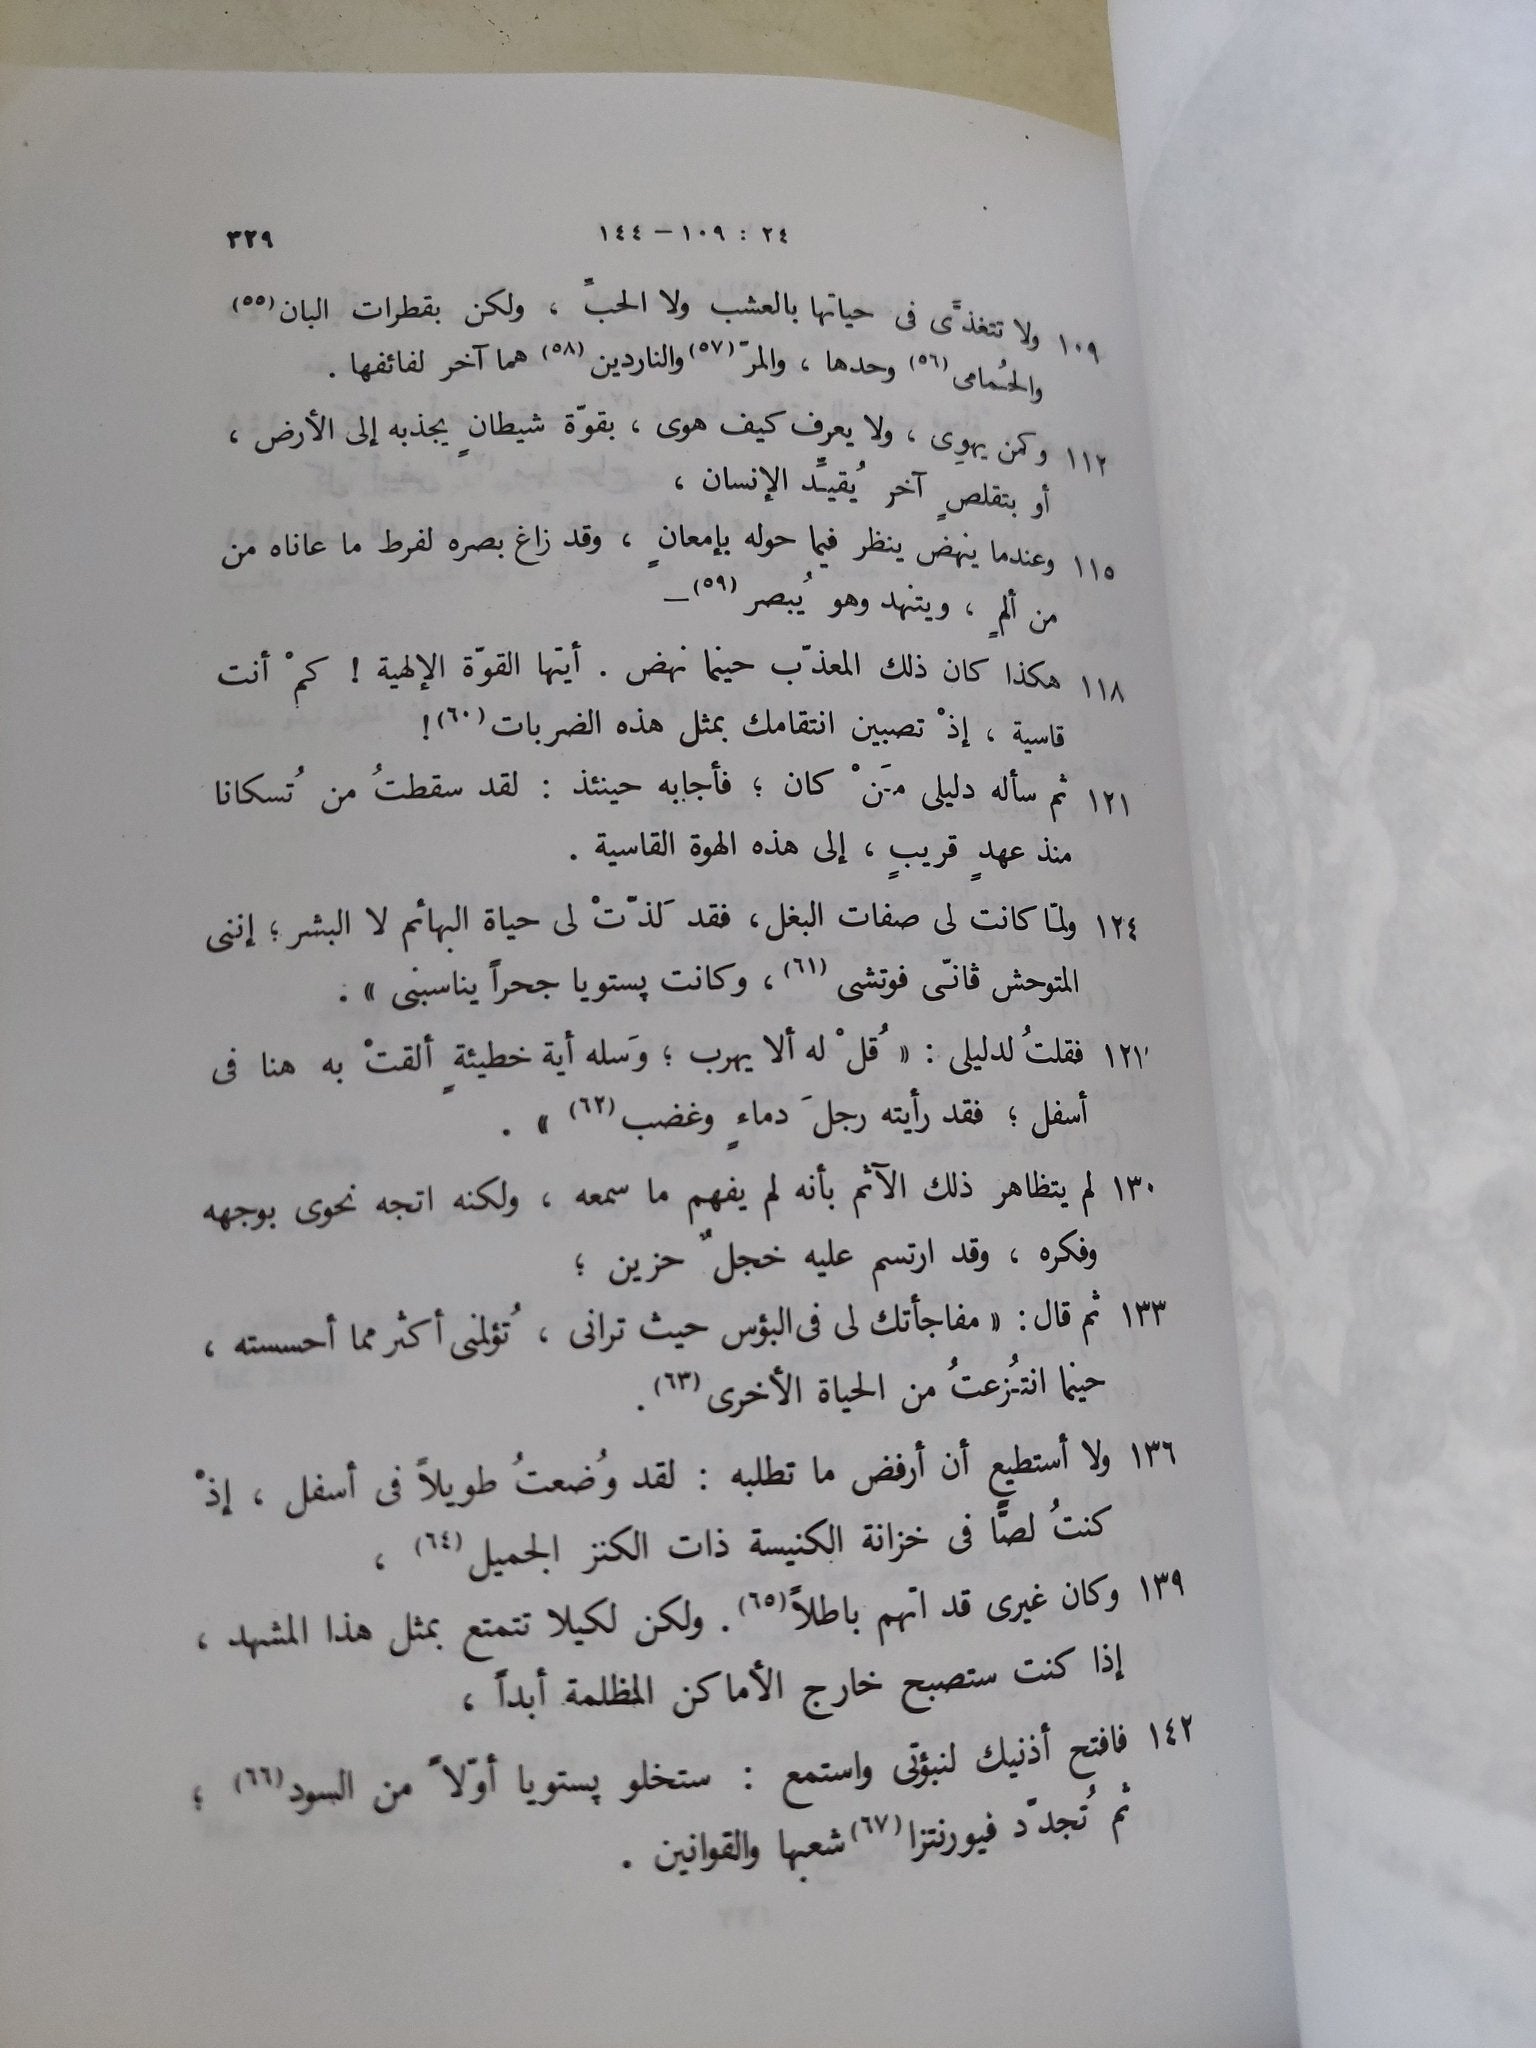 ٢٤ : ١٠٩ – ١٤٤
٣٢٩
١٠٩ ولا تتغذَّى فى حياتها بالعشب ولا الحبِّ ، ولكن بقطرات البان(٥٥)
والحُمامى(٥٦) وحدها ، والمرّ(٥٧) والناردين(٥٨) هما آخر لفائفها .
١١٢ وكمن يهوِى ، ولا يعرف كيف هوى ، بقوّة شيطانٍ يجذبه إلى الأرض ،
أو بتقلصٍ آخر يُقيِّد الإنسان ،
١١٥ وعندما ينهض ينظر فيما حوله بإمعانٍ ، وقد زاغ بصره لفرط ما عاناه من
من ألمٍ ، ويتنهد وهو يُبصر(٥٩)–
١١٨ هكذا كان ذلك المعذّب حينما نهض . أيتها القوّة الإلهية ! كمْ أنت
قاسية ، إذْ تصبين انتقامك بمثل هذه الضربات(٦٠)!
١٢١ ثم سأله دليلى مَنْ كان ؛ فأجابه حينئذ : لقد سقطتُ من تُسكانا
منذ عهدٍ قريبٍ ، إلى هذه الهوة القاسية .
١٢٤ ولمّا كانت لى صفات البغل ، فقد لَذّتْ لى حياة البهائم لا البشر ؛ إننى
المتوحش ڤانّى فوتشى(٦١) ، وكانت پستويا جحراً يناسبنى » .
١٢٧ فقلتُ لدليلى : « قُلْ له ألا يهرب ؛ وَسله أية خطيئةٍ ألقتْ به هنا فى
أسفل ؛ فقد رأيته رجلَ دماءٍ وغضب(٦٢) » .
١٣٠ لم يتظاهر ذلك الآثم بأنه لم يفهم ما سمعه ، ولكنه اتجه نحوى بوجهه
وفكره ، وقد ارتسم عليه خجلٌ حزين ؛
١٣٣ ثم قال : « مفاجأتك لى فى البؤس حيث ترانى ، تُؤلمنى أكثر مما أحسسته ،
حينما انتُزعتُ من الحياة الأخرى(٦٣) .
١٣٦ ولا أستطيع أن أرفض ما تطلبه : لقد وُضعتُ طويلاً فى أسفل ، إذْ
كنتُ لصًّا فى خزانة الكنيسة ذات الكنز الجميل(٦٤) ،
١٣٩ وكان غيرى قد اتّهم باطلاً(٦٥) . ولكن لكيلا تتمتع بمثل هذا المشهد ،
إذا كنت ستصبح خارج الأماكن المظلمة أبداً ،
١٤٢ فافتح أذنيك لنبؤتى واستمع : ستخلو پستويا أوّلاً من السود(٦٦) ؛
ثم تُجدّد فيورنتزا(٦٧) شعبها والقوانين .